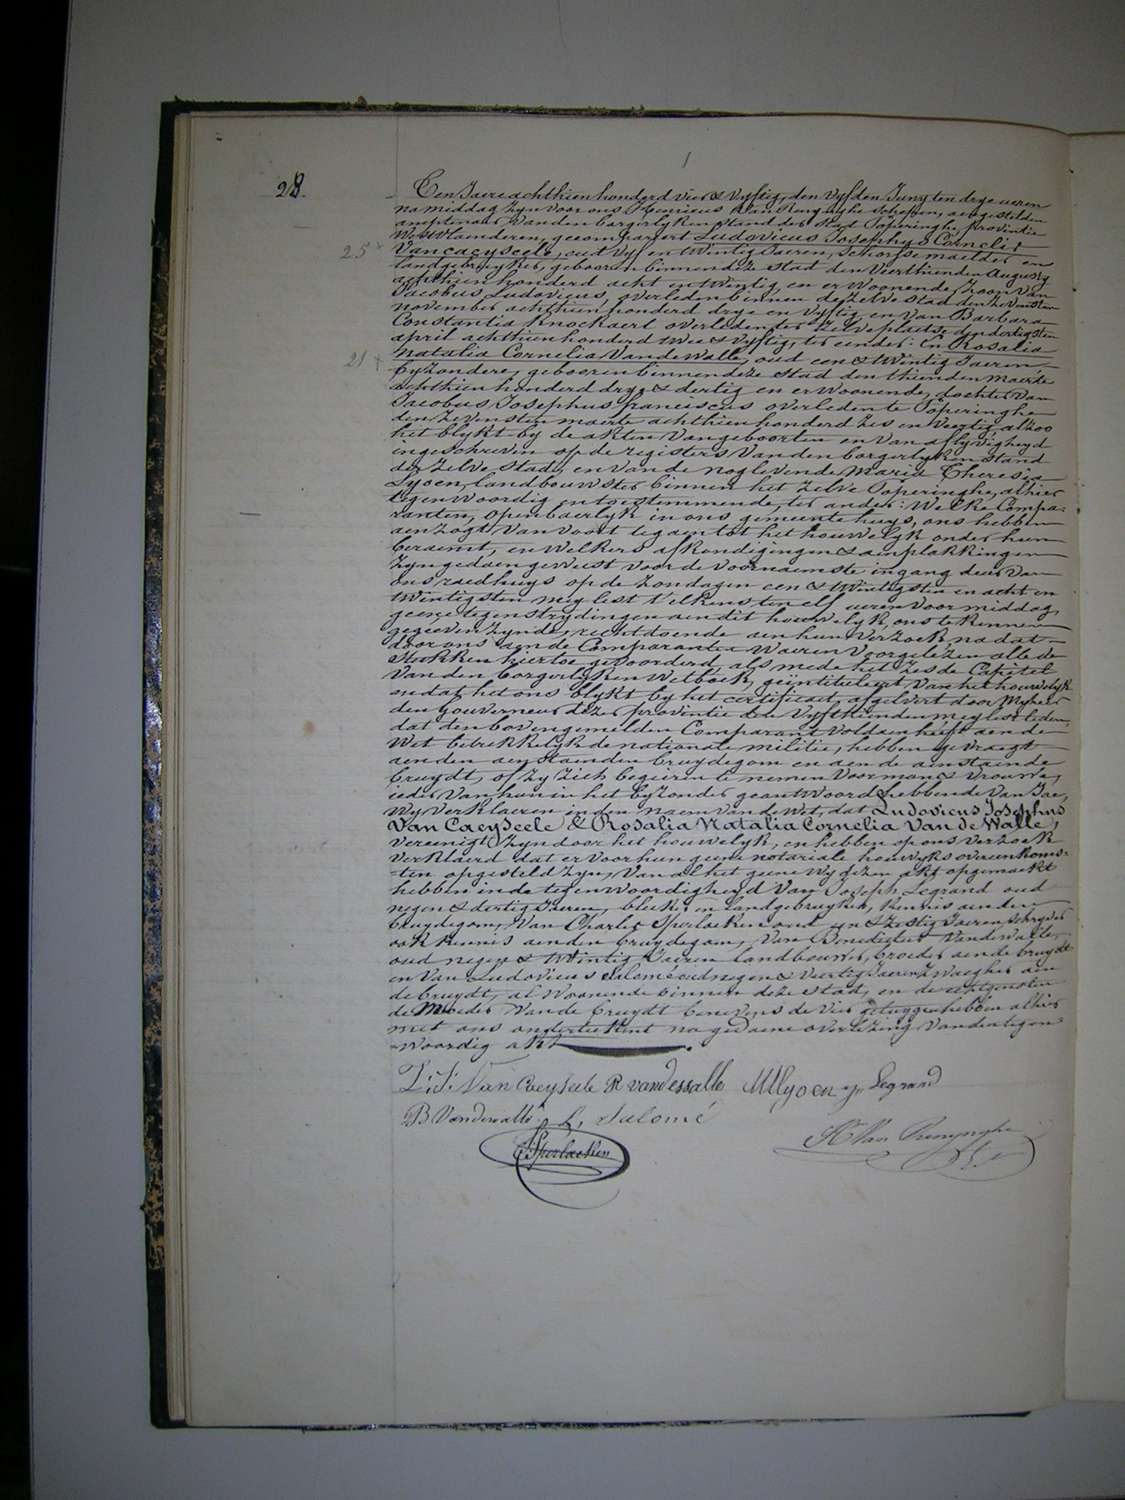 28.
Een Jaere achthien honderd vier & vyftig, den vyfden Juny ten drye ueren
na middag zyn voor ons Henricus Van Renynghe Schepen, aengestelden
amptenaer van den borgerlyken stand der Stad Poperinghe, provintie
WestVlaenderen, gecompareert Ludovicus Josephus Cornelis
25 x Van Caeyseele, oud vyf en twintig Jaeren, schorsemaelder en
landgebruyker, geboren binnen deze stad den vierthienden Augusty
achthien honderd acht en twintig, en er woonende, zoon van
Jacobus Ludovicus, overleden binnen de zelve stad den zevensten
november achthien honderd drye en vyftig, en van Barbara
Constantia Knockaert overleden ter zelve plaetse den dertigsten
april achthien honderd twee & vyftig, ter eender: En Rosalia
21 x Natalia Cornelia Van de Walle, oud een & twintig Jaeren
byzondere, geboren binnen deze stad den thienden maerte
achthien honderd drye & dertig en er woonende, dochter van
Jacobus Josephus franciscus overleden te Poperinghe
den zevensten maerte achthien honderd zes en veertig, alzoo
het blykt by de akten van geboorten en van aflyvigheyd
ingeschreven op de registers van den borgerlyken stand
der zelve stad, en van de nog levende Maria Theresia
Lyoen, landbouwster binnen het zelve Poperinghe, alhier
tegenwoordig en toestemmende, ter ander: Welke Compa-
ranten, openbaerlyk in ons gemeente huys, ons hebben
aenzogt van voort te gaen tot het houwelyk onder hun
beraemt, en welkers afkondigingen & aenplakkingen
zyn gedaen geweest voor de voornaemste ingang deur van
ons raedhuys op de zondagen een & twintigsten en acht en
twintigsten mey lest t'elkens ten elf ueren voormiddag,
geene tegenstrydingen aen dit houwelyk, ons te kennen
gegeven zynde, rechtdoende aen hun verzoek na dat
door ons aen de Comparanten waeren voorgelezen alle de
stukken hiertoe gevoorderd, als mede het zesde Capitel
van den borgerlyken Wetboek, geïntituleert van het houwelyk
en dat het ons blykt by het certificaet, afgelvert door Myheer
den Gouverneur dezer provintie de vyfthienden mey lest leden,
dat den bovengemelden Comparant voldaen heeft aen de
Wet betrekkelyk de nationale militie, hebben gevraegt
aen den aenstaenden bruydegom en aen de aenstaende
bruydt, of zy zich begeiren te nemen voor man & vrouwe,
ieder van hun in het byzonder geantwoord hebbende van Jae,
Wy verklaeren in den naem van de wet, dat Ludovicus Josephus
Van Caeyseele & Rosalia Natalia Cornelia Van de Walle,
vereenigt zyn door het houwelyk, en hebben op ons verzoek
verklaerd dat er voor hun geene notariale houwyks overeenkoms-
-ten opgesteld zyn, van al het geene wy dezen akt opgemaekt
hebben in de tegenwoordigheyd van Joseph Legrand oud
negen & dertig Jaeren, bleeker en landgebruyker, kennis aen den
bruydegom, van Charles Sperlaeken oud en & zestig Jaeren, schryver
ook kennis aen den bruydegom, van Benedictus Vandewalle,
oud negen & twintig Jaeren landbouwer, broeder aen de bruydt
en van Ludovicus Salomé oud negen & veertig Jaeren, zwaegher aen
de bruydt, al woonende binnen deze stad, en de echtgenoten
de Moeder van de bruydt benevens de vier getuygen hebben alhier
met ons onderteekent na gedaene overlezing van den tegen
-woordig akt
L. J. Van Caeyseele R vandewalle MTLyoen J. Legrand
B Vandewalle L. Salomé
C. Sperlaeken H. Van Renynghe